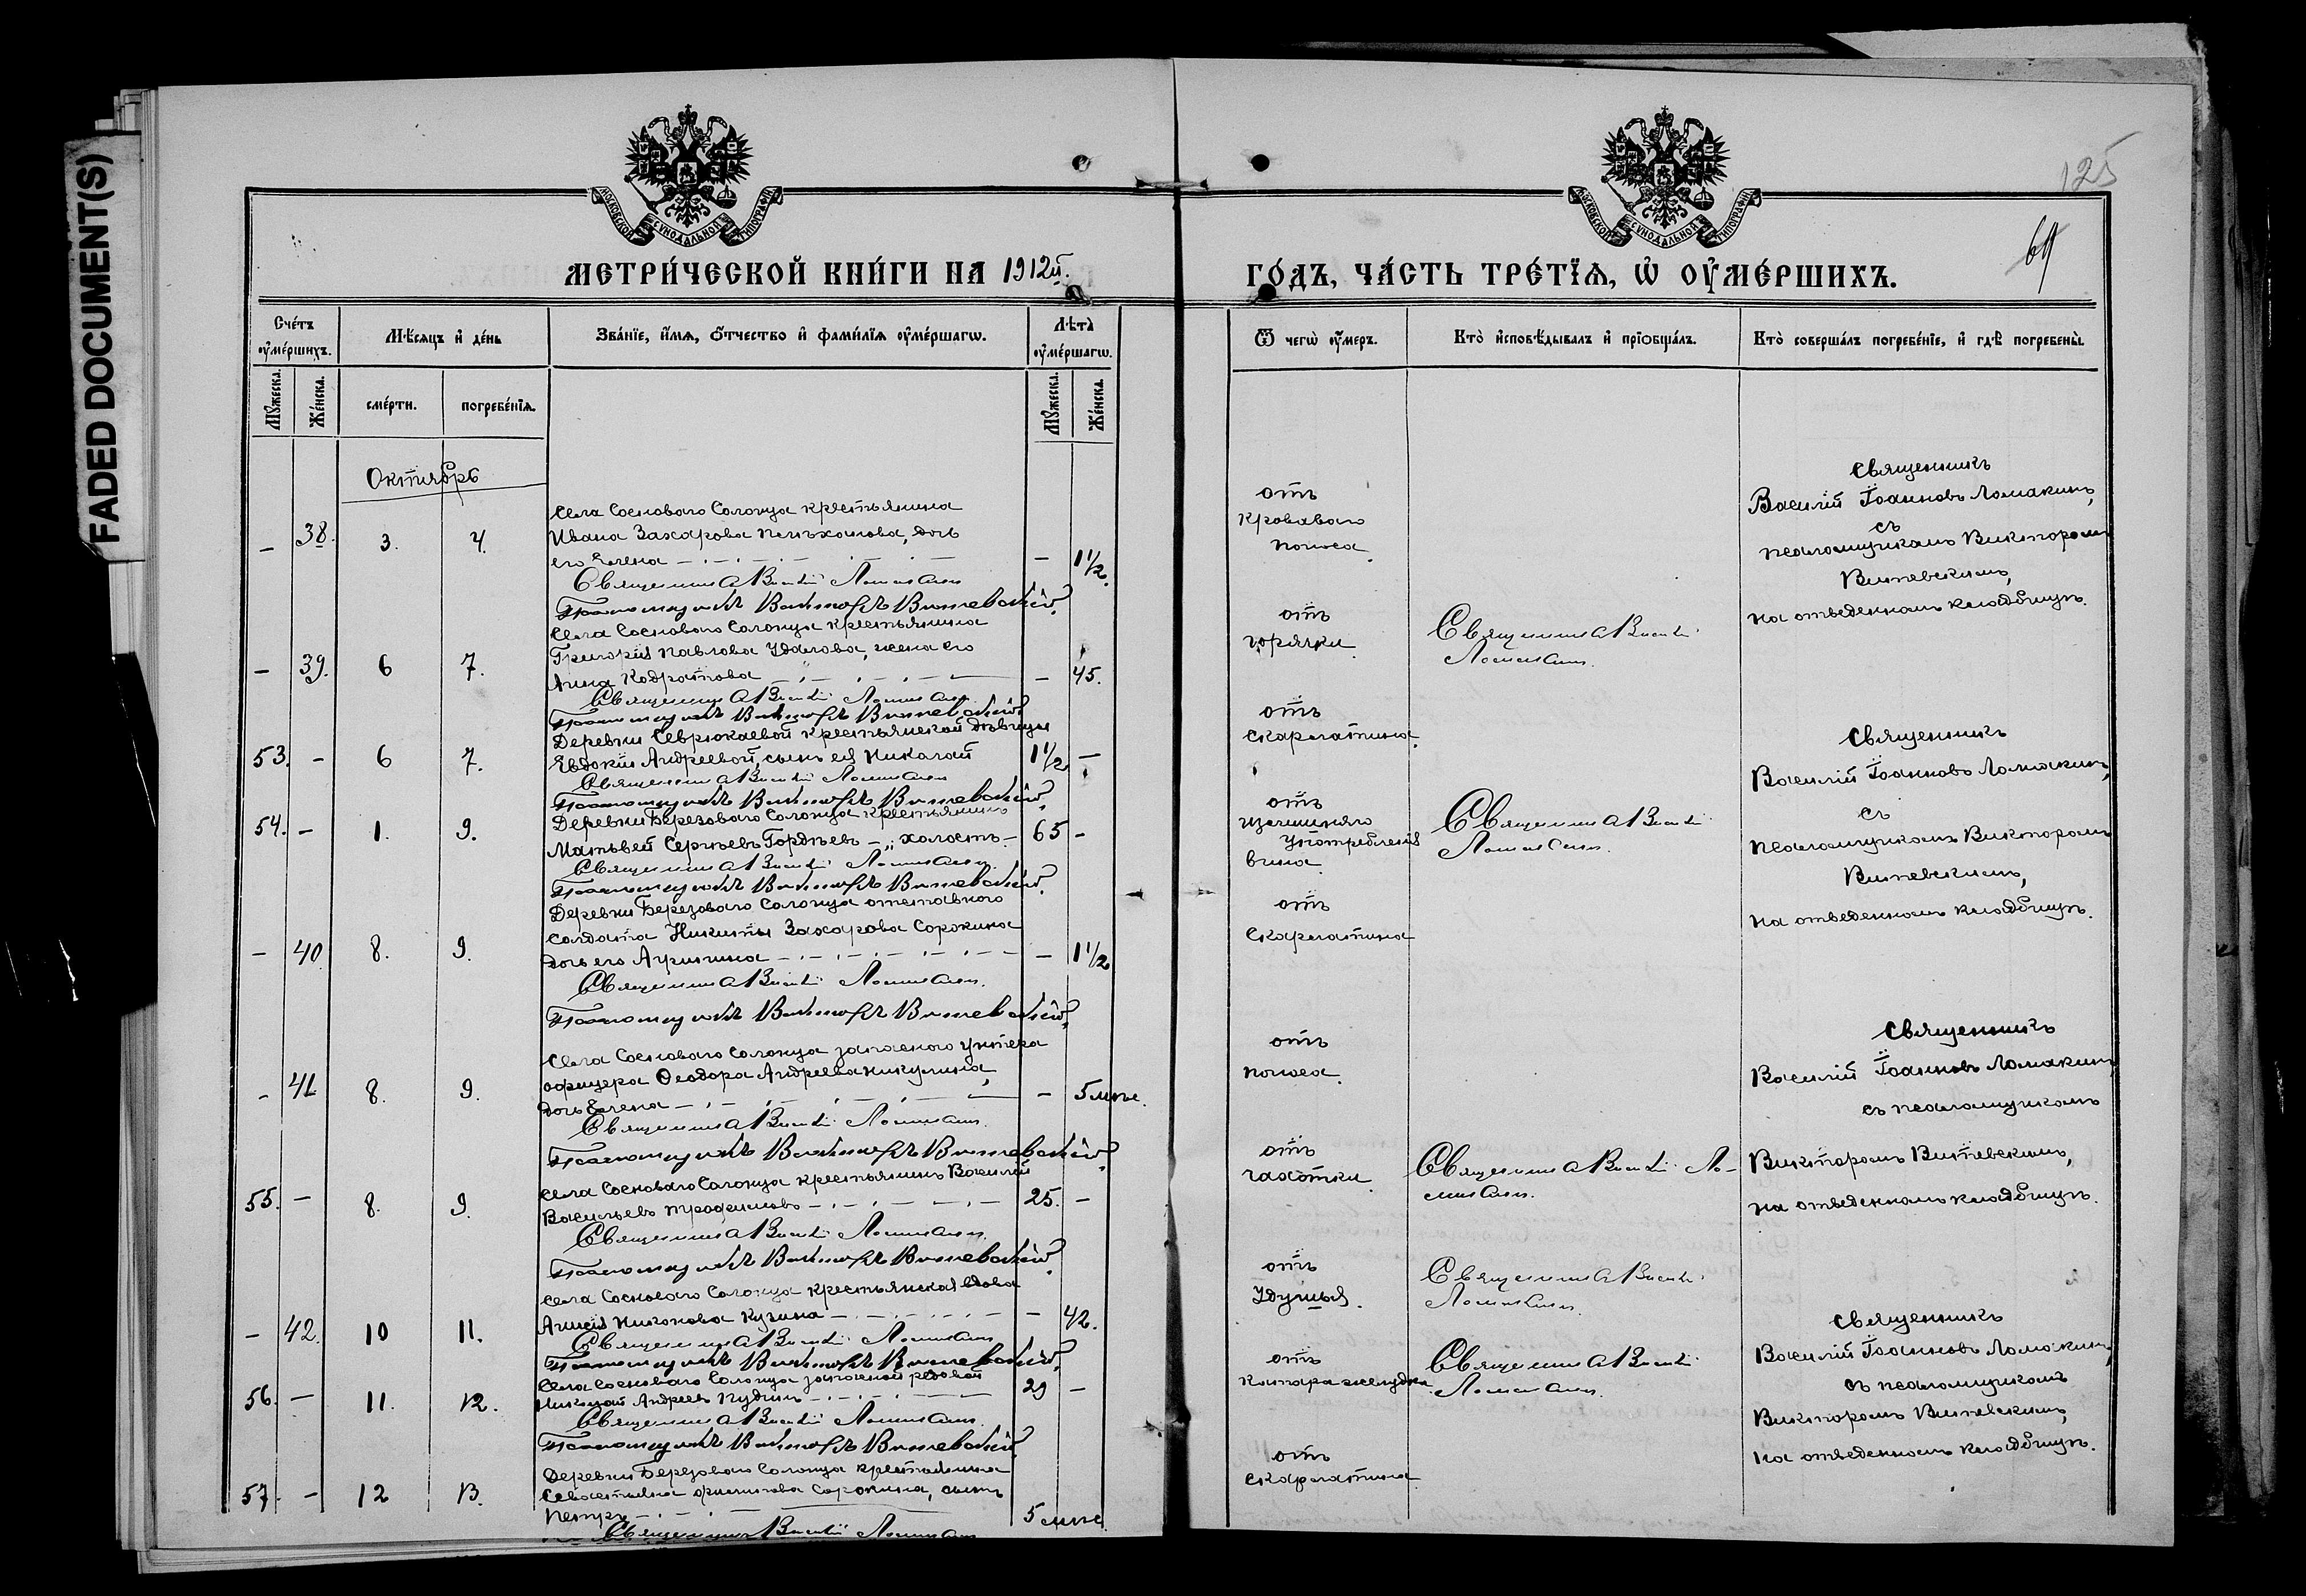 FADED DOCUMENT(S)
МОСКОВСКОЙ СѴНОДАЛЬНОЙ ТИПОГРАФІИ
МОСКОВСКОЙ СѴНОДАЛЬНОЙ ТИПОГРАФІИ
125
69
МЕТРИ́ЧЕСКОЙ КНИ́ГИ НА 1912й.
ГО́ДЪ, ЧА́СТЬ ТРЕ́ТЇѦ, Ѡ ОУМЕ́РШИХЪ.
Сче́тъ оумершихъ.
Мѣсяцъ и де́нь
Зва́нїе, и́мѧ, ѻтчество и фами́лїѧ оуме́ршагѡ.
Лѣта̀ оуме́ршагѡ.
Мꙋжеска. Же́нска.
сме́рти. погребе́нїѧ.
Мꙋжеска. Же́нска.
Ѿ чегѡ̀ оу́меръ.
Кто̀ исповѣ́дывалъ и прїѻбща́лъ.
Кто̀ соверша́лъ погребе́нїе, и гдѣ̀ погребены̀.
Октябрь
Села Сосноваго Солонца крестьянина
– 38. 3. 4. Ивана Захарова дочь
его Елена – 1½.
Священникъ Василій Ломакинъ
Псаломщикъ Викторъ Витевскій.
Села Сосноваго Солонца крестьянина
Григорія Павлова Удалова, жена его
– 39. 6 7. Анна Кодратова – 45.
Священникъ Василій Ломакинъ
Псаломщикъ Викторъ Витевскій
Деревни Севрюкаевой крестьянской дѣвицы
53. – 6 7. Евдокіи Андреевой, сынъ ея Николай 1½ –
Священникъ Василій Ломакинъ
Псаломщикъ Викторъ Витевскій.
Деревни Березоваго Солонца крестьянинъ
54. – 1. 9. Матвѣй Сергѣевъ Гордѣевъ – холостъ – 65 –
Священникъ Василій Ломакинъ.
Псаломщикъ Викторъ Витевскій.
Деревни Березоваго Солонца отставного
солдата Никиты Захарова Сорокина
– 40. 8. 9. дочь его – 1½
Священникъ Василій Ломакинъ.
Псаломщикъ Викторъ Витевскій.
Села Сосноваго Солонца запасного унтера
– 41 8. 9. офицера Ѳеодора Андреева Никулина,
дочь Елена – 5 мѣс.
Священникъ Василій Ломакинъ.
Псаломщикъ Викторъ Витевскій.
Села Сосноваго Солонца крестьянинъ Василій
55. – 8. 9. Васильевъ Трофимовъ – 25. –
Священникъ Василій Ломакинъ.
Псаломщикъ Викторъ Витевскій.
Села Сосноваго Солонца крестьянская вдова
– 42. 10 11. Никонова Кузина – 42.
Священникъ Василій Ломакинъ
Псаломщикъ Викторъ Витевскій.
Села Сосноваго Солонца запасной рядовой
56. – 11. 12. Николай Андреевъ Пудинъ – 29 –
Священникъ Василій Ломакинъ.
Псаломщикъ Викторъ Витевскій.
Деревни Березоваго Солонца крестьянина
57. – 12 13. Севастьяна Филиппова Сорокина, сынъ
Петръ – 5 мѣс
Священникъ Василій Ломакинъ
отъ
кроваваго
поноса.
отъ
горячки.
Священникъ Василій
Ломакинъ.
отъ
скарлатины.
отъ
излишняго
употребленія
вина.
Священникъ Василій
Ломакинъ.
отъ
скарлатина
отъ
поноса.
отъ
чахотки.
Священникъ Василій Ло-
макинъ.
отъ
удушья.
Священникъ Василій
Ломакинъ.
отъ
катара желудка.
Священникъ Василій
Ломакинъ.
отъ
скарлатина
Священникъ
Василій Іоанновъ Ломакинъ,
съ
псаломщикомъ Викторомъ
Витевскимъ,
на отведенномъ кладбищѣ.
Священникъ
Василій Іоанновъ Ломакинъ,
съ
псаломщикомъ Викторомъ
Витевскимъ,
на отведенномъ кладбищѣ.
Священникъ
Василій Іоанновъ Ломакинъ,
съ псаломщикомъ
Викторомъ Витевскимъ,
на отведенномъ кладбищѣ.
Священникъ
Василій Іоанновъ Ломакинъ,
съ псаломщикомъ
Викторомъ Витевскимъ,
на отведенномъ кладбищѣ.